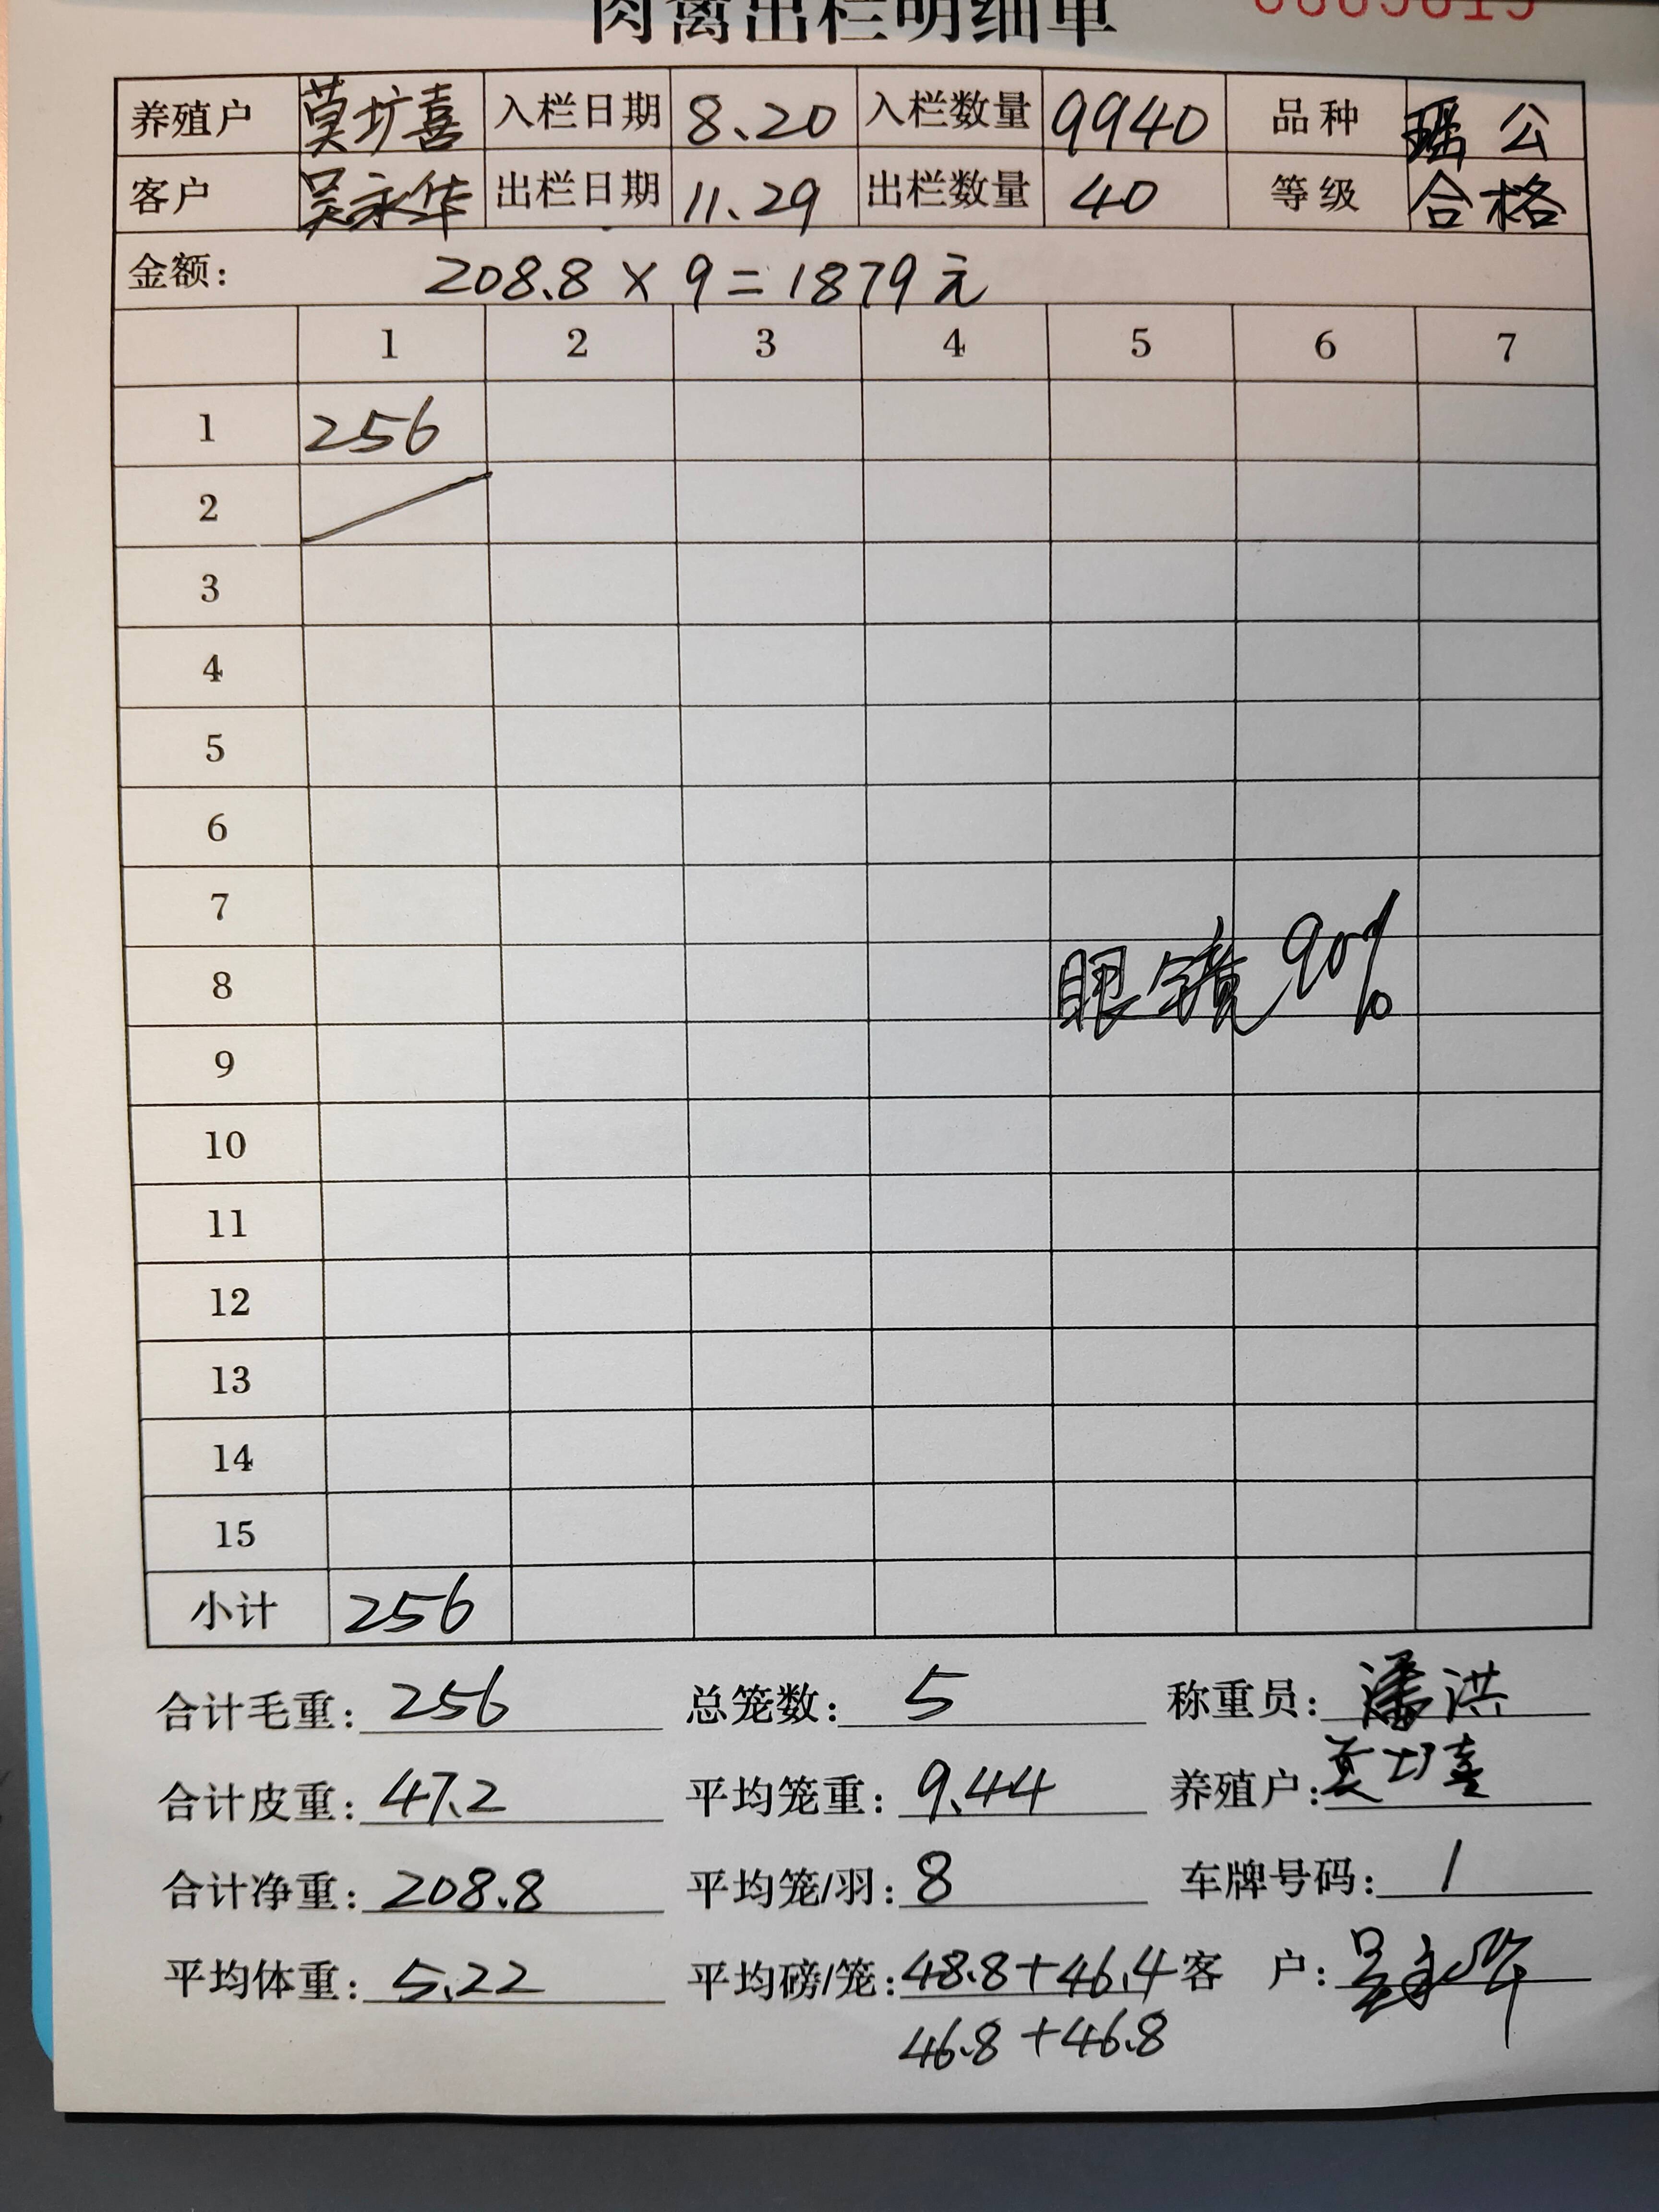 肉禽出栏明细单
养殖户 莫圹喜 入栏日期 8.20 入栏数量 9940 品种 瑶公
客户 吴永华 出栏日期 11.29 出栏数量 40 等级 合格
金额: 208.8 × 9 = 1879元
1 2 3 4 5 6 7
1 256
2
3
4
5
6
7
8 眼镜90%
9
10
11
12
13
14
15
小计 256
合计毛重: 256 总笼数: 5 称重员: 潘洪
合计皮重: 47.2 平均笼重: 9.44 养殖户: 莫圹喜
合计净重: 208.8 平均笼/羽: 8 车牌号码: /
平均体重: 5.22 平均磅/笼: 48.8+46.4 客 户: 吴永华
46.8+46.8